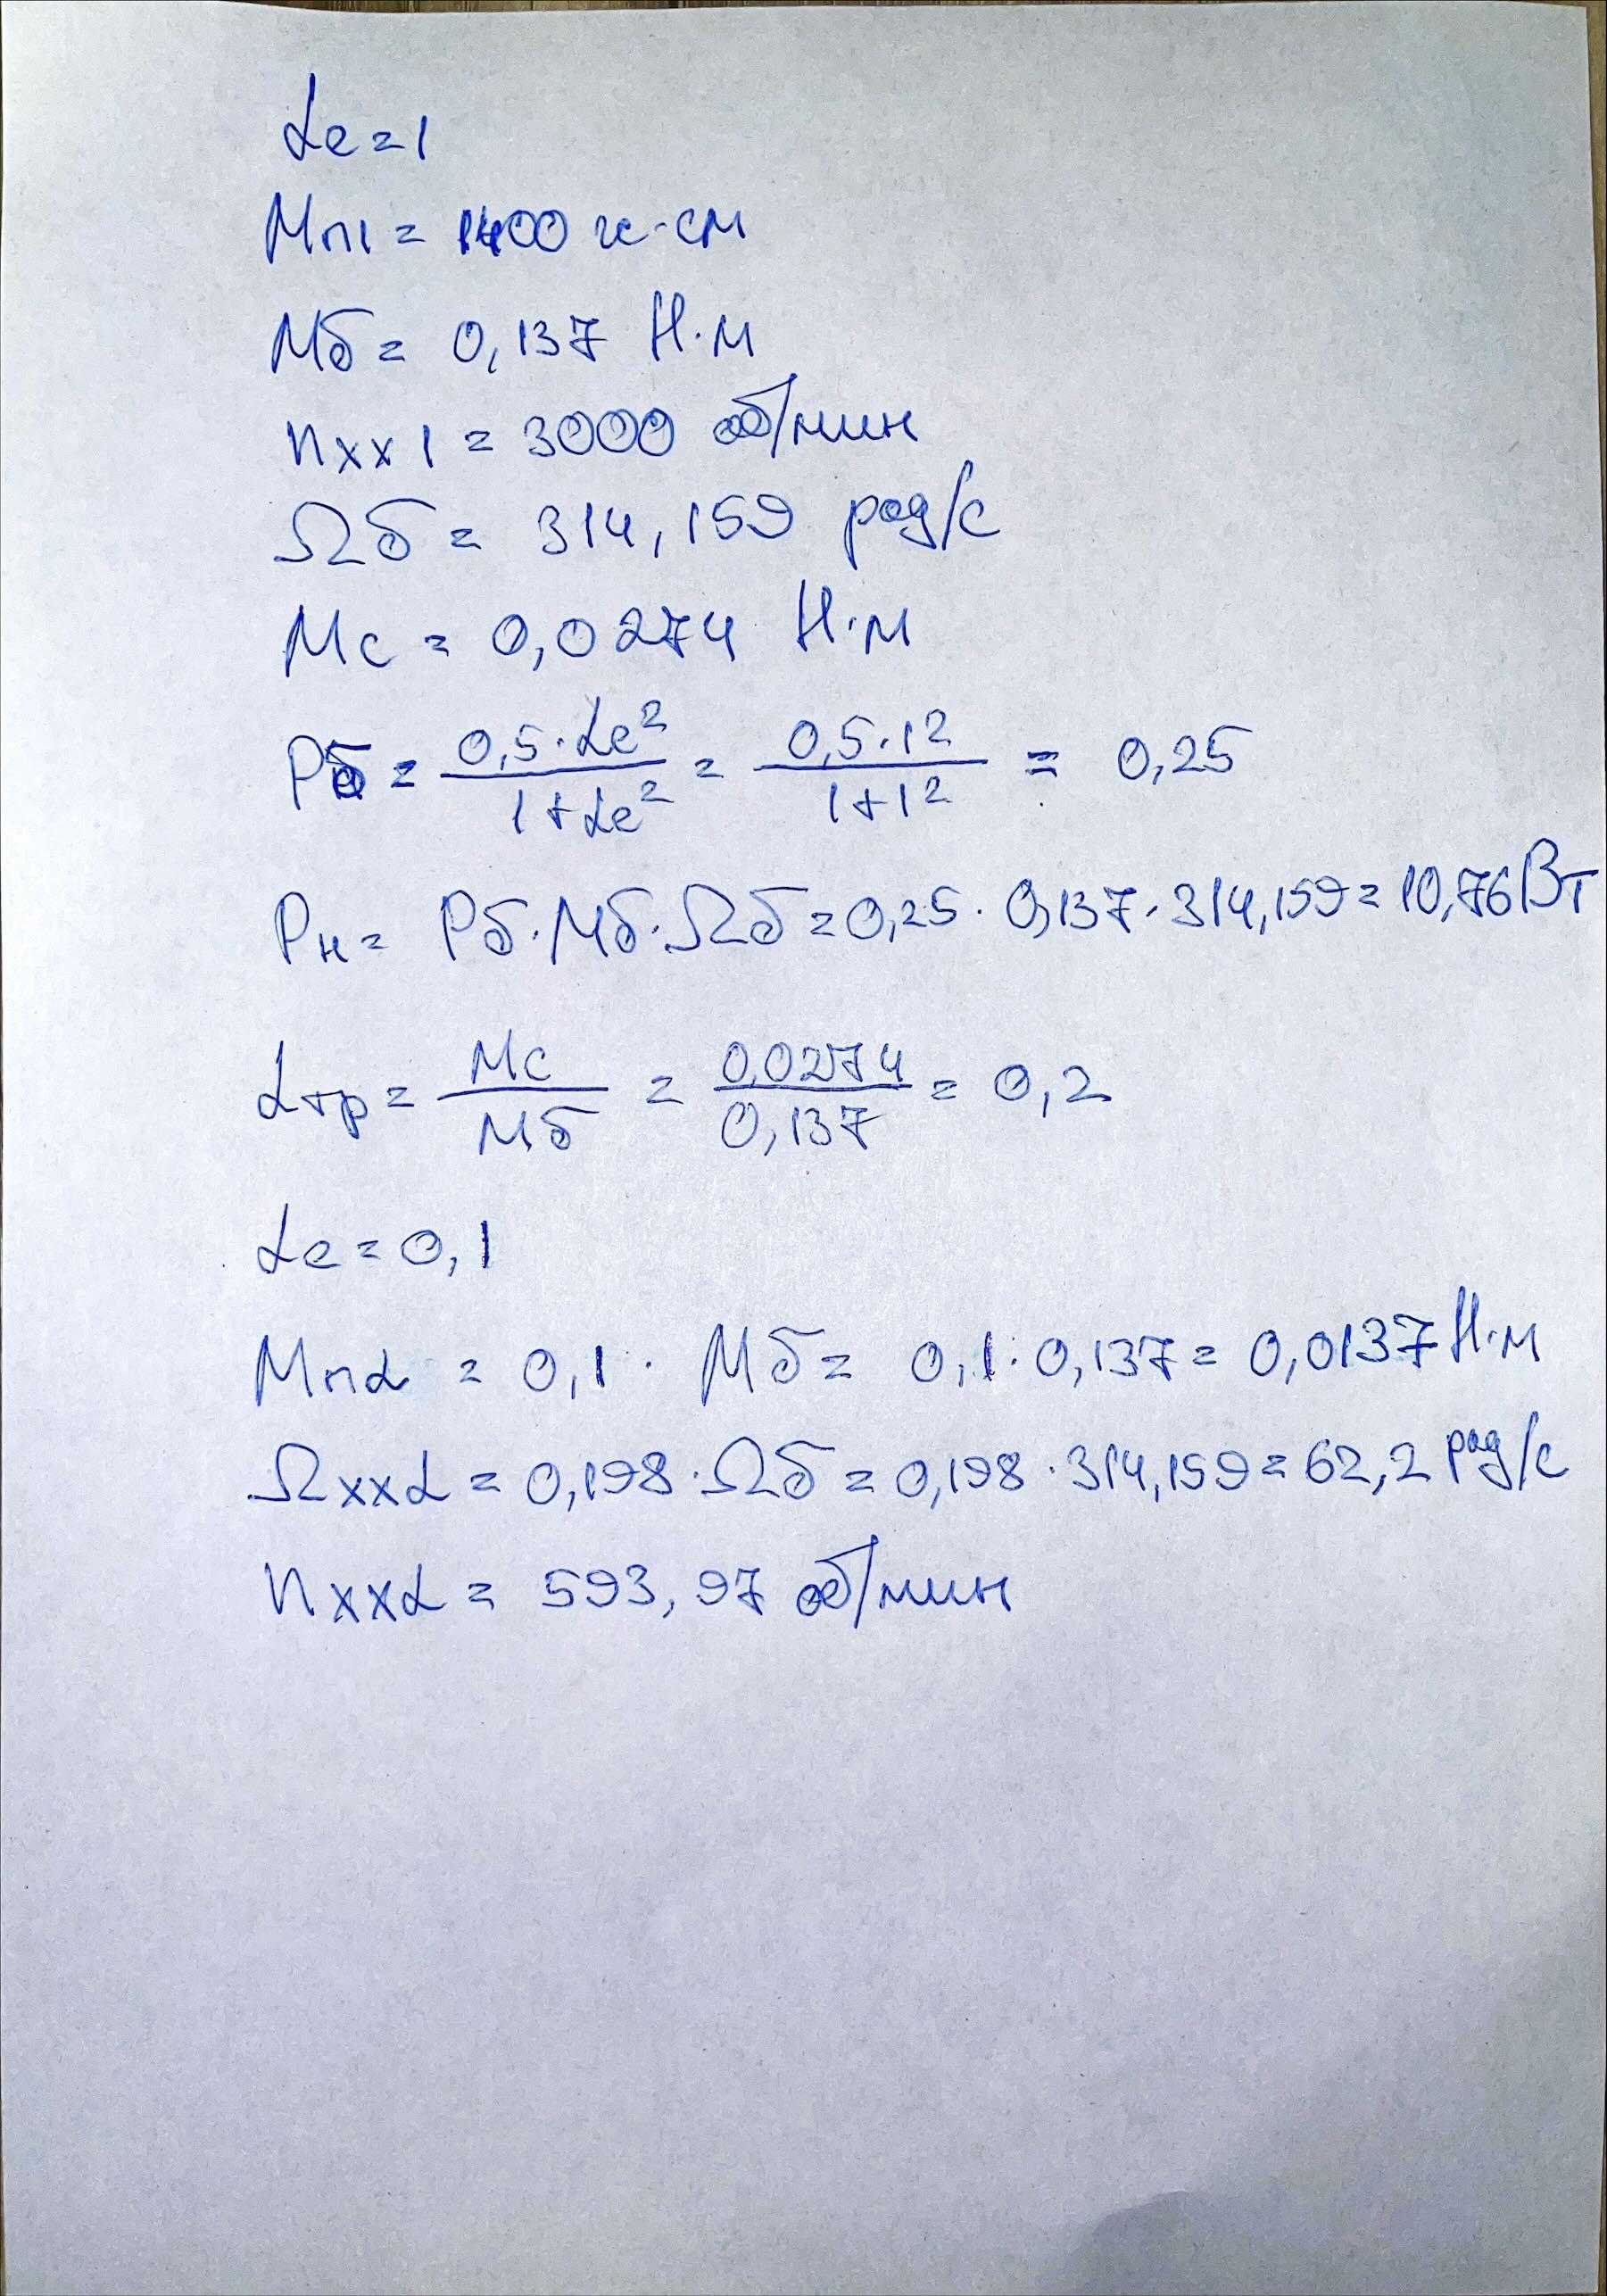 αe = 1
Mп1 = 1400 гс·см
Mб = 0,137 Н·м
nхх1 = 3000 об/мин
Ωб = 314,159 рад/с
Mс = 0,0274 Н·м
Pб = 0,5·αe² / 1+αe² = 0,5·1² / 1+1² = 0,25
Pн = Pб·Mб·Ωб = 0,25·0,137·314,159 = 10,76 Вт
αтр = Mс / Mб = 0,0274 / 0,137 = 0,2
αe = 0,1
Mпα = 0,1 · Mб = 0,1·0,137 = 0,0137 Н·м
Ωххα = 0,198·Ωб = 0,198·314,159 = 62,2 рад/с
nххα = 593,97 об/мин